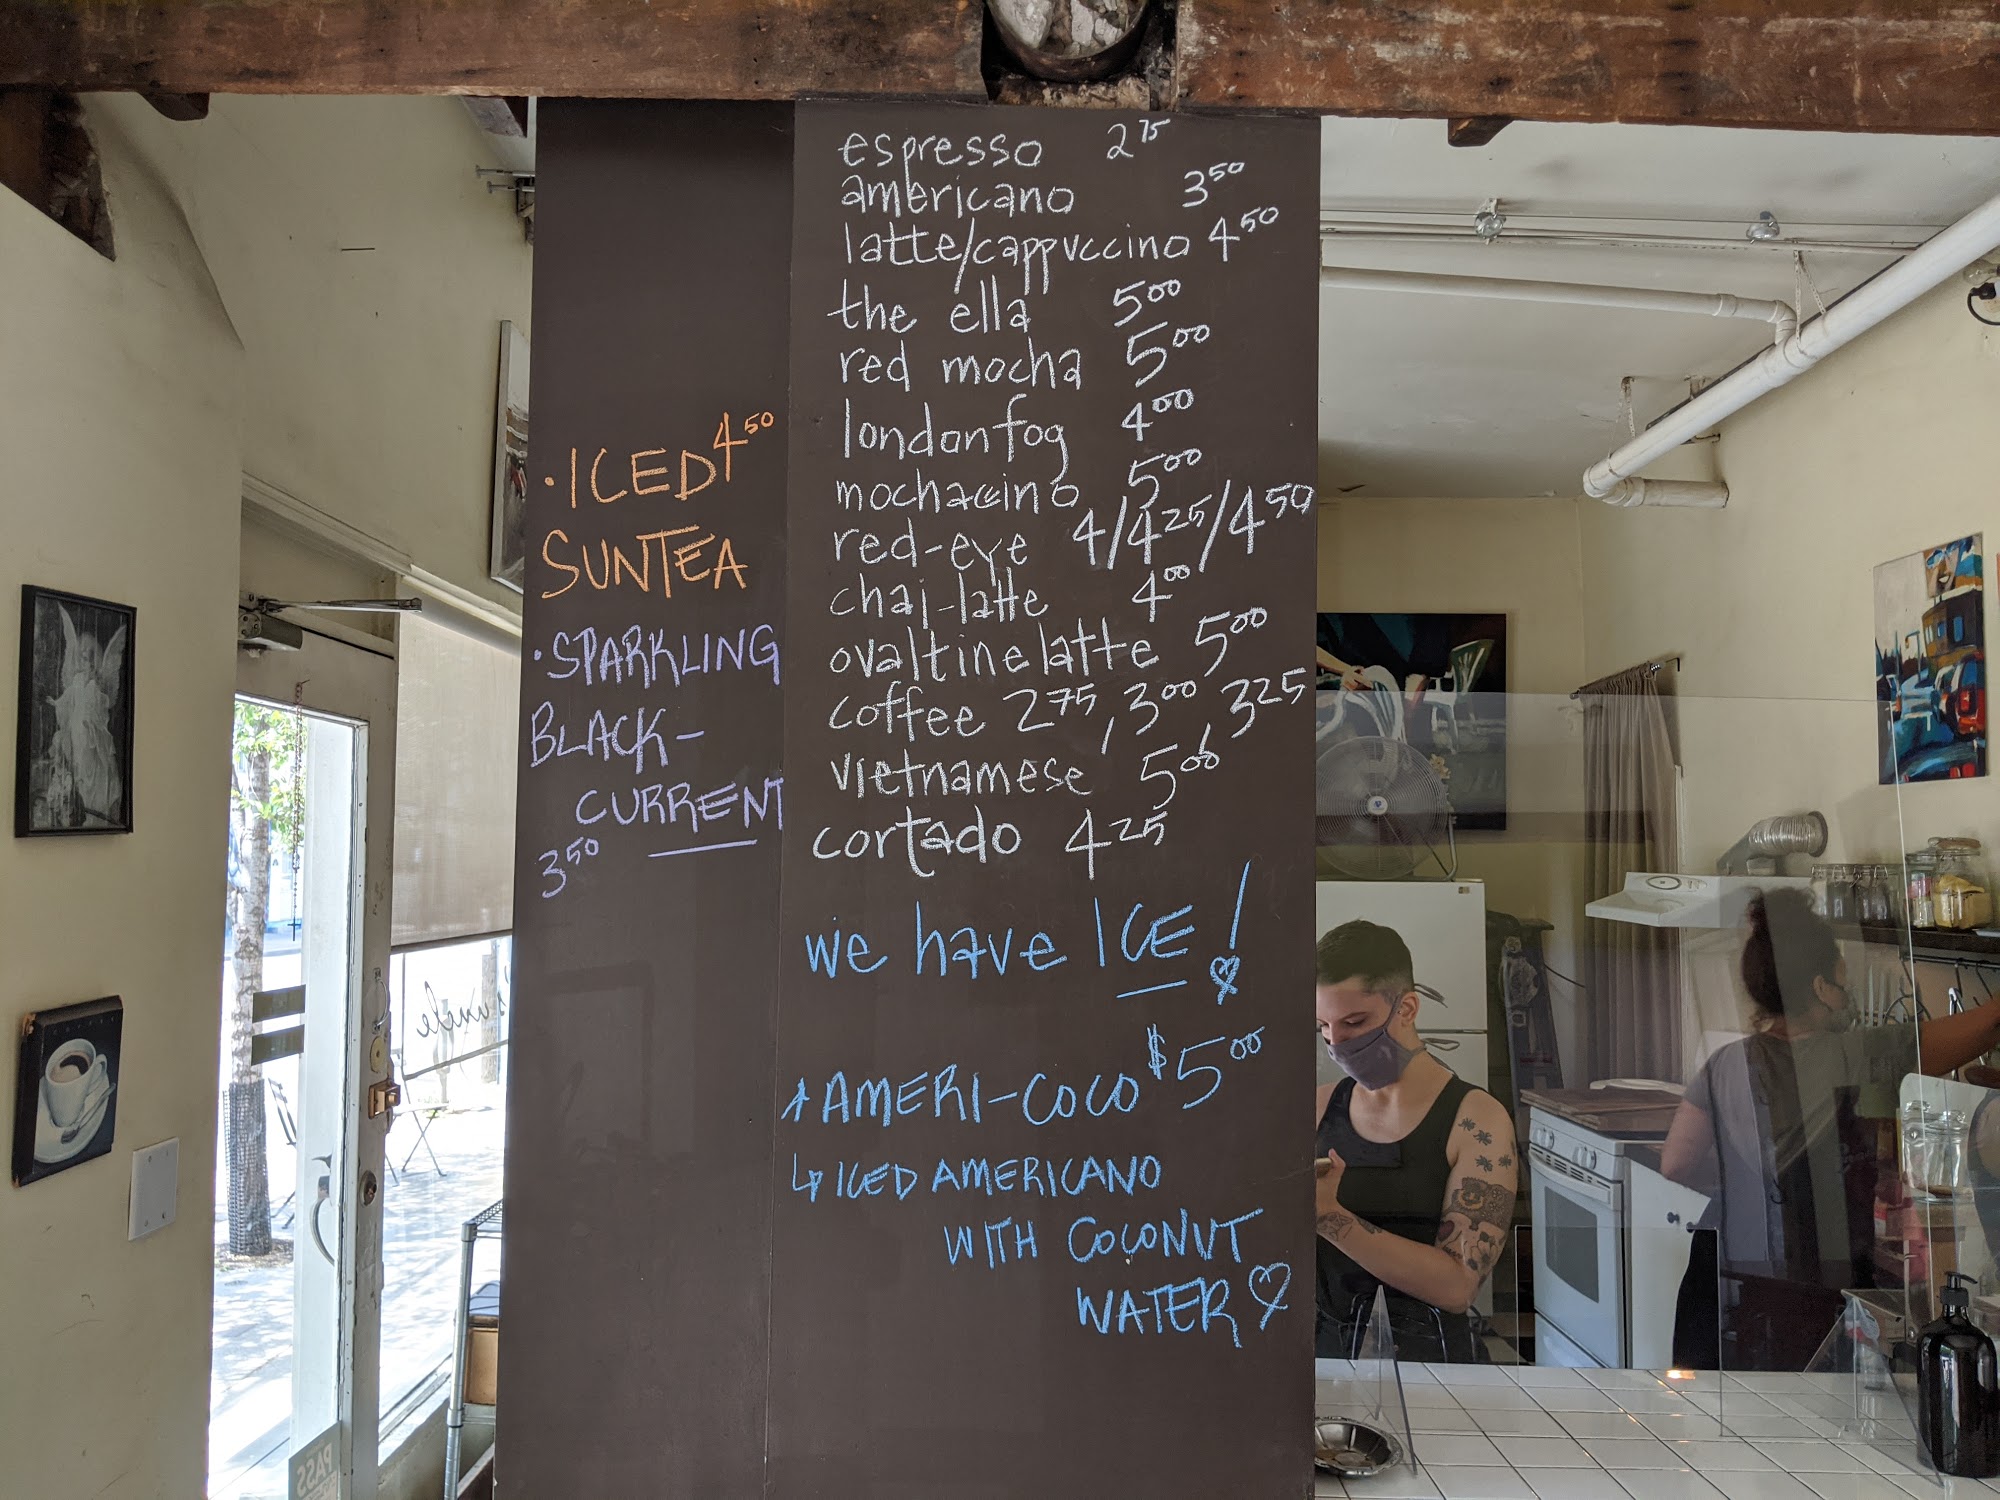 espresso 2 75
americano 3 50
latte/cappuccino 4 50
the ella 5 00
red mocha 5 00
london fog 4 00
mochaccino 5 00
red-eye 4/4 25/4 50
chai-latte 4 00
ovaltine latte 5 00
coffee 2 75, 3 00, 3 25
vietnamese 5 00
cortado 4 25
we have ICE!
AMERI-COCO $5 00
↳ ICED AMERICANO
WITH COCONUT
WATER ♡
• ICED 4 50
SUNTEA
• SPARKLING
BLACK-
CURRENT
3 50
uncle
PASS